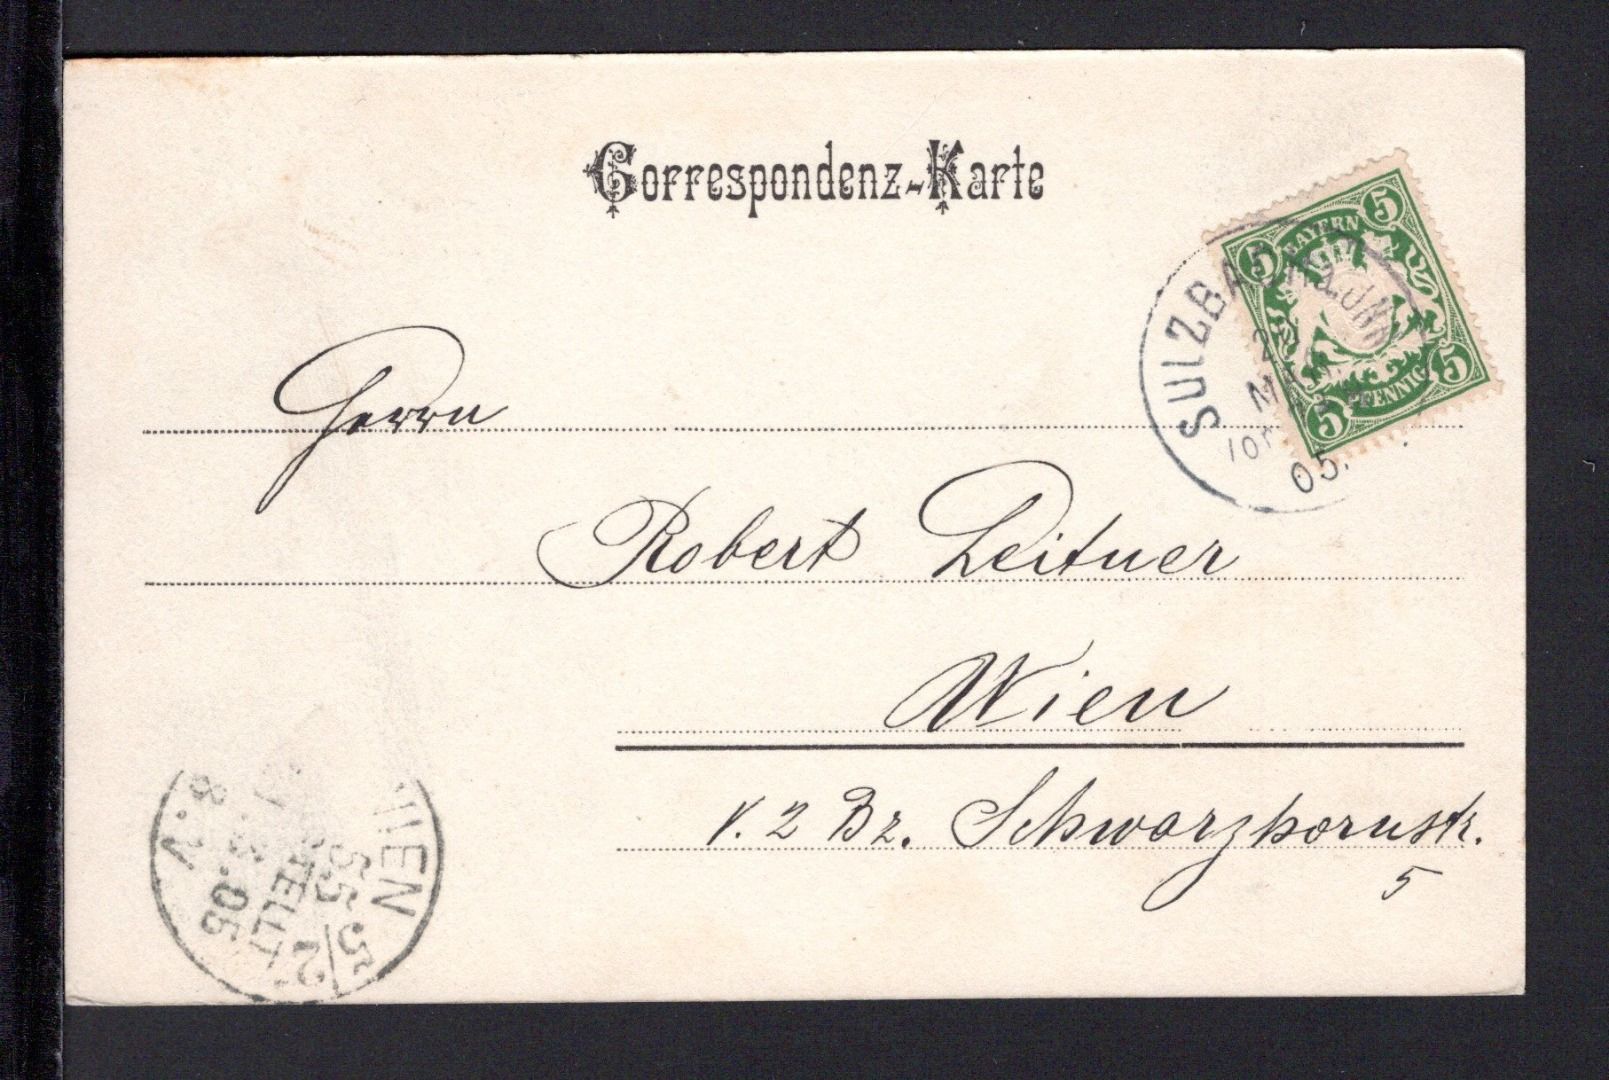 Correspondenz-Karte
BAYERN
5 5
5 5
PFENNIG
SULZBACH a. INN
MAR
05.
Herrn
Robert Leitner
Wien
V. 2 Bz. Schwarzhornstr.
5
WIEN
55 5/2
8. V
3. 05